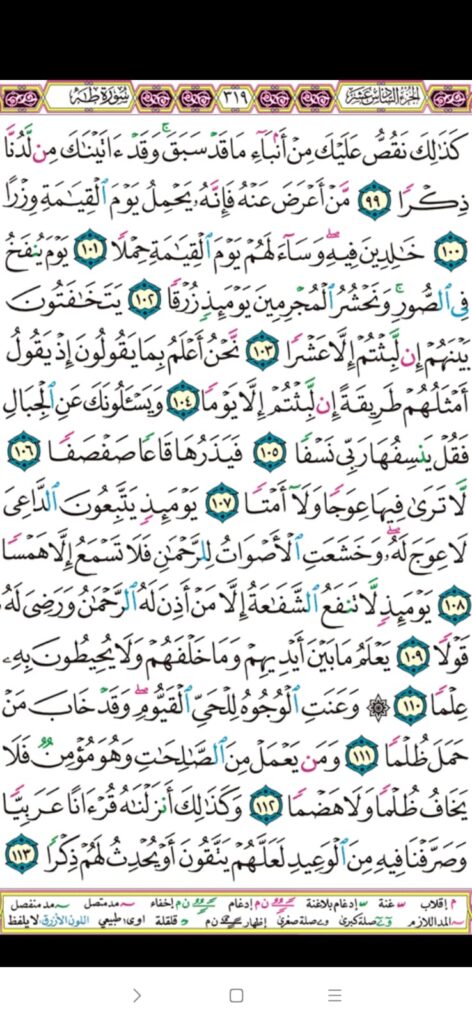 سورة طه ٣١٩ الجزء السادس عشر
كَذَٰلِكَ نَقُصُّ عَلَيْكَ مِنْ أَنۢبَآءِ مَا قَدْ سَبَقَ ۚ وَقَدْ ءَاتَيْنَٰكَ مِن لَّدُنَّا
ذِكْرًا ٩٩ مَّنْ أَعْرَضَ عَنْهُ فَإِنَّهُۥ يَحْمِلُ يَوْمَ ٱلْقِيَٰمَةِ وِزْرًا
١٠٠ خَٰلِدِينَ فِيهِ ۖ وَسَآءَ لَهُمْ يَوْمَ ٱلْقِيَٰمَةِ حِمْلًا ١٠١ يَوْمَ يُنفَخُ
فِى ٱلصُّورِ ۚ وَنَحْشُرُ ٱلْمُجْرِمِينَ يَوْمَئِذٍ زُرْقًا ١٠٢ يَتَخَٰفَتُونَ
بَيْنَهُمْ إِن لَّبِثْتُمْ إِلَّا عَشْرًا ١٠٣ نَّحْنُ أَعْلَمُ بِمَا يَقُولُونَ إِذْ يَقُولُ
أَمْثَلُهُمْ طَرِيقَةً إِن لَّبِثْتُمْ إِلَّا يَوْمًا ١٠٤ وَيَسْـَٔلُونَكَ عَنِ ٱلْجِبَالِ
فَقُلْ يَنسِفُهَا رَبِّى نَسْفًا ١٠٥ فَيَذَرُهَا قَاعًا صَفْصَفًا ١٠٦
لَّا تَرَىٰ فِيهَا عِوَجًا وَلَآ أَمْتًا ١٠٧ يَوْمَئِذٍ يَتَّبِعُونَ ٱلدَّاعِىَ
لَا عِوَجَ لَهُۥ ۖ وَخَشَعَتِ ٱلْأَصْوَاتُ لِلرَّحْمَٰنِ فَلَا تَسْمَعُ إِلَّا هَمْسًا
١٠٨ يَوْمَئِذٍ لَّا تَنفَعُ ٱلشَّفَٰعَةُ إِلَّا مَنْ أَذِنَ لَهُ ٱلرَّحْمَٰنُ وَرَضِىَ لَهُۥ
قَوْلًا ١٠٩ يَعْلَمُ مَا بَيْنَ أَيْدِيهِمْ وَمَا خَلْفَهُمْ وَلَا يُحِيطُونَ بِهِۦ
عِلْمًا ١١٠ ۞ وَعَنَتِ ٱلْوُجُوهُ لِلْحَىِّ ٱلْقَيُّومِ ۖ وَقَدْ خَابَ مَنْ
حَمَلَ ظُلْمًا ١١١ وَمَن يَعْمَلْ مِنَ ٱلصَّٰلِحَٰتِ وَهُوَ مُؤْمِنٌ فَلَا
يَخَافُ ظُلْمًا وَلَا هَضْمًا ١١٢ وَكَذَٰلِكَ أَنزَلْنَٰهُ قُرْءَانًا عَرَبِيًّا
وَصَرَّفْنَا فِيهِ مِنَ ٱلْوَعِيدِ لَعَلَّهُمْ يَتَّقُونَ أَوْ يُحْدِثُ لَهُمْ ذِكْرًا ١١٣
م إقلاب غنة إدغام بلاغنة ن م إدغام إخفاء مد متصل مد منفصل
المد اللازم صلة كبرى وصلة صغرى إظهار ن م قلقلة اوى: طبيعي اللون الأزرق: لا يلفظ